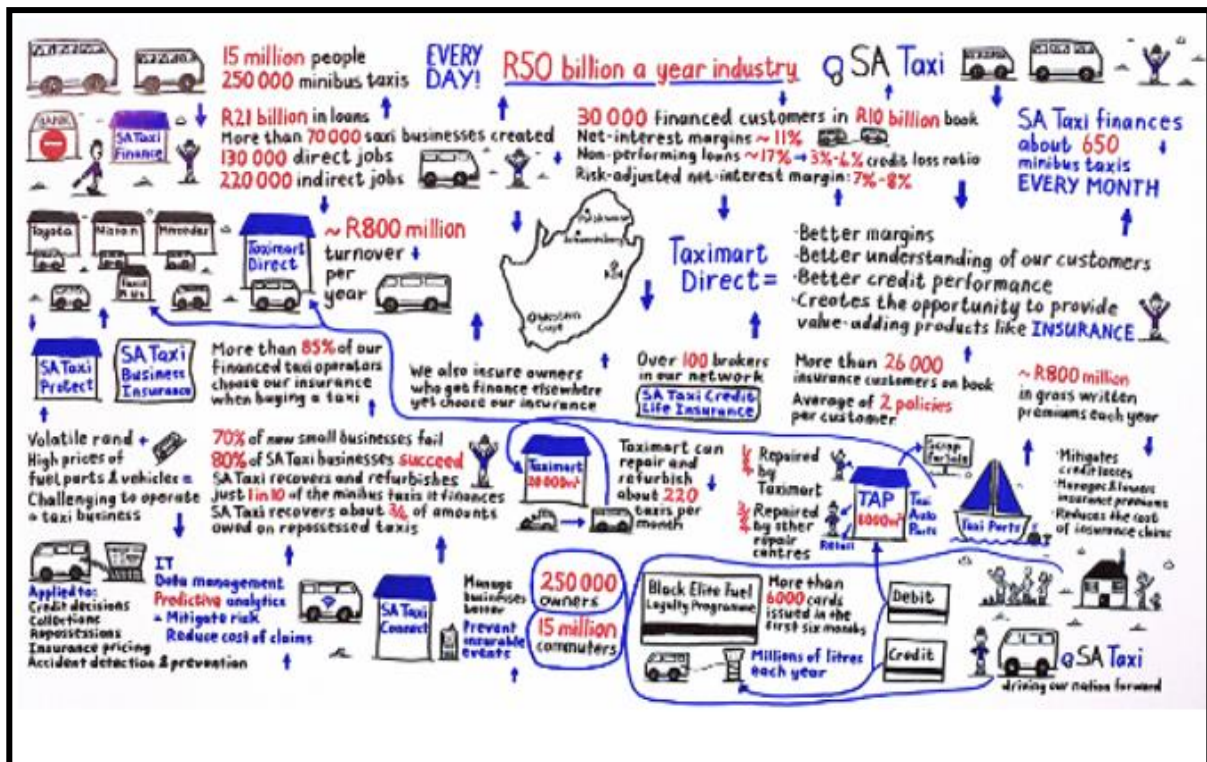 15 million people
250 000 minibus taxis
EVERY
DAY!
R50 billion a year industry
SA Taxi
BANK
SA Taxi
Finance
R21 billion in loans
More than 70 000 saxi businesses created
130 000 direct jobs
220 000 indirect jobs
30 000 financed customers in R10 billion book
Net-interest margins ~ 11%
Non-performing loans ~17% → 3%-4% credit loss ratio
Risk-adjusted net-interest margin: 7%-8%
SA Taxi finances
about 650
minibus taxis
EVERY MONTH
Toyota
Nissan
Mercedes
Taximart
Direct
~ R800 million
turnover
per
year
Johannesburg
KZN
Western
Cape
Taximart
Direct =
·Better margins
·Better understanding of our customers
·Better credit performance
·Creates the opportunity to provide
value-adding products like INSURANCE
SA Taxi
Protect
SA Taxi
Business
Insurance
More than 85% of our
Financed taxi operators
choose our insurance
when buying a taxi
We also insure owners
who get finance elsewhere
yet choose our insurance
Over 100 brokers
in our network
SA Taxi Credit
Life Insurance
More than 26 000
insurance customers on book
Average of 2 policies
per customer
~ R800 million
in gross written
premiums each year
Volatile rand +
High prices of
fuel parts & vehicles =
Challenging to operate
a taxi business
70% of new small businesses fail
80% of SA Taxi businesses succeed
SA Taxi recovers and refurbishes
just 1 in 10 of the minibus taxis it finances
SA Taxi recovers about 3/4 of amounts
owed on repossessed taxis
Taximart
20 000m²
Taximart can
repair and
refurbish
about 220
taxis per
month
Repaired
by
Taximart
Repaired
by other
repair
centres
TAP
8000m²
Retail
Taxi
Auto
Parts
Scrap
for Sale
Taxi Parts
· Mitigates
credit losses
· Manages & lowers
insurance premiums
· Reduces the cost
of insurance claims
Applied to:
Credit decisions
Collections
Repossessions
Insurance pricing
Accident detection & prevention
IT
Data management
Predictive analytics
= Mitigate risk
Reduce cost of claims
SA Taxi
Connect
Manage
businesses
better
Prevent
insurable
events
250 000
owners
15 million
commuters
Black Elite Fuel
Loyalty Programme
More than
6000 cards
issued in the
first six months
Millions of litres
each year
Debit
Credit
SA Taxi
driving our nation forward